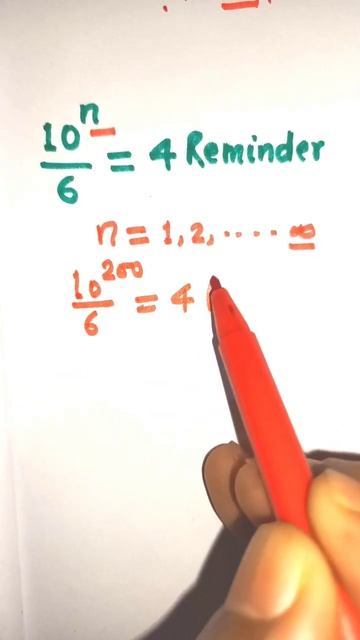 10ⁿ/6 = 4 Reminder
n = 1, 2, ..... ∞
10²⁰⁰/6 = 4